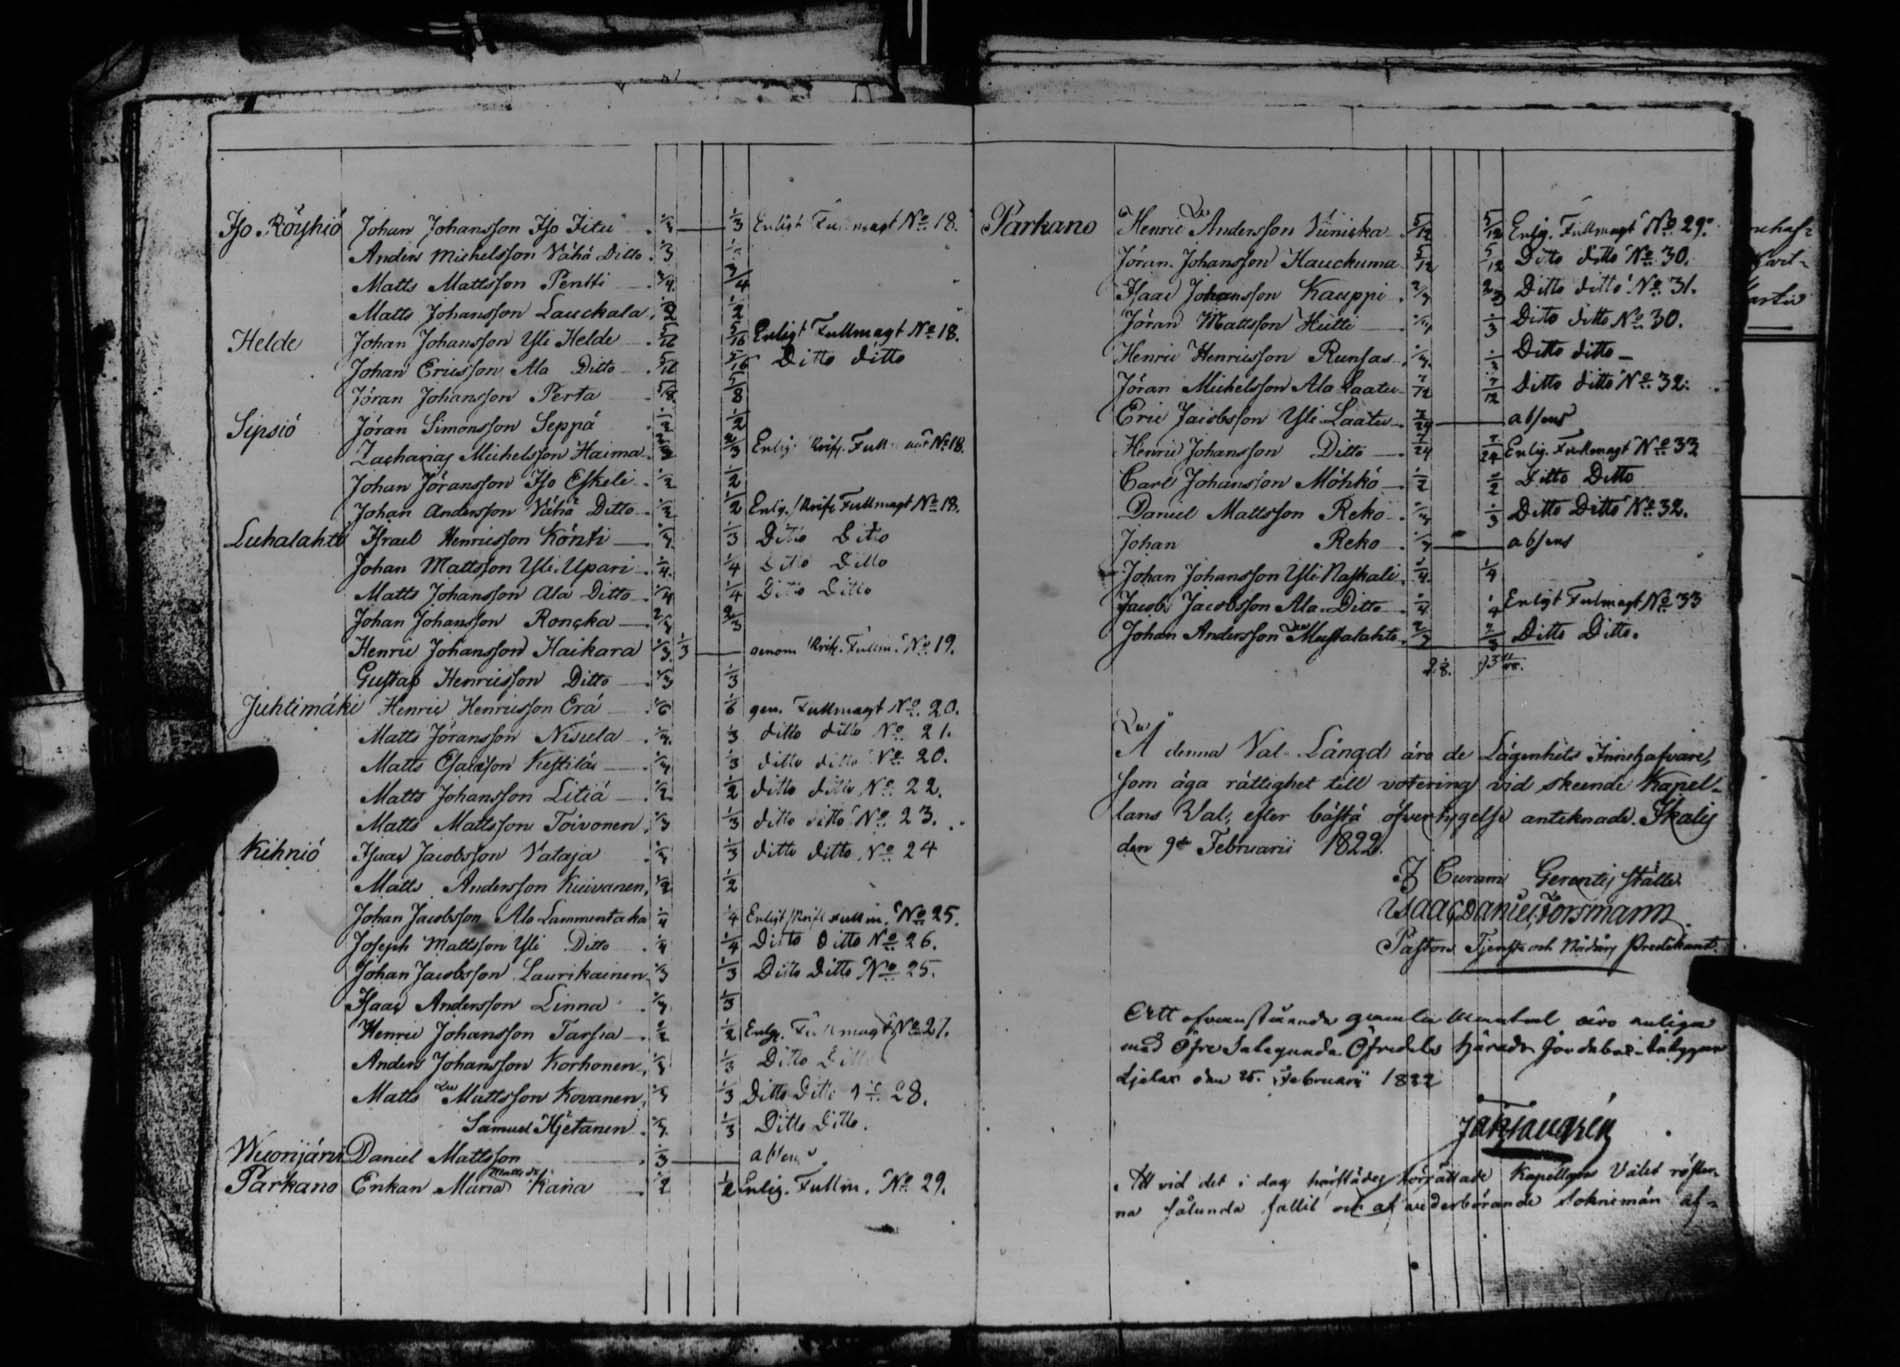 Iso Röyhiö Johan Johansson Iso Iitu 1/3 — 1/3 Enligt Fullmagt No 18.
Anders Michelsson Vähä Ditto 1/3 1/3
Matts Mattsson Pentti 3/4 3/4
Matts Johansson Lauckala 1/2 1/2
Helde Johan Johansson Yli Helde 5/16 5/16 Enligt Fullmagt No 18.
Johan Ericsson Ala Ditto 5/16 5/16 Ditto ditto
Jöran Johansson Perta 5/8 5/8
Sipsiö Jöran Simonsson Seppä 1/2 1/2
Zacharias Michelsson Haima 2/3 2/3 Enligt Skrift. Fullm No 18.
Johan Jöransson Iso Eskeli 1/2 1/2
Johan Andersson Vähä Ditto 1/2 1/2 Enlig. Skrift. Fullmagt No 18.
Luhalahti Israel Henricsson Könti 1/3 1/3 Ditto Ditto
Johan Mattsson Yli Upari 1/4 1/4 Ditto Ditto
Matts Johansson Ala Ditto 1/4 1/4 Ditto Ditto
Johan Johansson Roncka 2/3 2/3
Henric Johansson Haikara 1/3 1/3 — genom Skrift. Fullm. No 19.
Gustaf Henricsson Ditto 1/3 1/3
Juhtimäki Henric Henricsson Erä 1/6 1/6 gen. Fullmagt No 20.
Matts Jöransson Nisula 1/3 1/3 ditto ditto No 21.
Matts Esaiasson Kestilä 1/3 1/3 ditto ditto No 20.
Matts Johansson Litiä 1/2 1/2 ditto ditto No 22.
Matts Mattsson Toivonen 1/3 1/3 ditto ditto No 23.
Kihniö Isaac Jacobsson Vataja 1/3 1/3 ditto ditto No 24
Matts Andersson Kuivanen 1/2 1/2
Johan Jacobsson Ala Lammentaka 1/4 1/4 Enligt Skrift Fullm. No 25.
Joseph Mattsson Yli Ditto 1/4 1/4 Ditto Ditto No 26.
Johan Jacobsson Laurikainen 1/3 1/3 Ditto Ditto No 25.
Isaac Andersson Linna 1/3 1/3
Henric Johansson Tarsia 1/2 1/2 Enlig. Fullmagt No 27.
Anders Johansson Korhonen 1/3 1/3 Ditto Ditto
Matts Mattsson Kovanen 1/3 1/3 Ditto Ditto No 28.
Samuel Hjetanen 1/3 1/3 Ditto Ditto.
Wuorijärvi Daniel Mattsson 1/3 — absens
Parkano Enkan Maria Matts dr Kaña 1/2 1/2 Enlig. Fullm. No 29.
Parkano Henric Andersson Viiniska 5/12 5/12 Enlig. Fullmagt No 29.
Jöran Johansson Hauckuma 5/12 5/12 Ditto ditto No 30.
Isaac Johansson Kauppi 2/3 2/3 Ditto ditto No 31.
Jöran Mattsson Hutti 1/3 1/3 Ditto ditto No 30.
Henric Henricsson Runsas 1/3 1/3 Ditto ditto —
Jöran Michelsson Ala Laatu 7/12 7/12 Ditto ditto No 32.
Eric Jacobsson Yli Laatu 7/24 — absens
Henric Johansson Ditto 7/24 7/24 Enlig. Fullmagt No 33
Carl Johansson Möhkö 1/2 1/2 Ditto Ditto
Daniel Mattsson Reko 1/3 1/3 Ditto Ditto No 32.
Johan Reko 1/3 — absens
Johan Johansson Yli Naskali 1/4 1/4
Jacob Jacobsson Ala Ditto 1/4 1/4 Enligt Fullmagt No 33
Johan Andersson Mustalahti 2/3 2/3 Ditto Ditto.
Å denna Val Längd äro de Lägenhets Innehafvare,
som äga rättighet till votering vid skeende Kapel-
lans Val, efter bästa öfvertygelse antecknade. Ikalis
den 9de Februarii 1822.
I Curam Gerentis ställe
Isaac Daniel Forsmann
Pastors Tjenste och Nådårs Predikant
Att ofvanstående gamla Mantal äro enliga
med Öfre Satagunda Öfredels Härads Jordebok intygar
den 25. Februarii 1822
Att vid det i dag härstädes förrättade Kapellans Valet röster-
na sålunda fallit och af vederbörande Sokneman af-